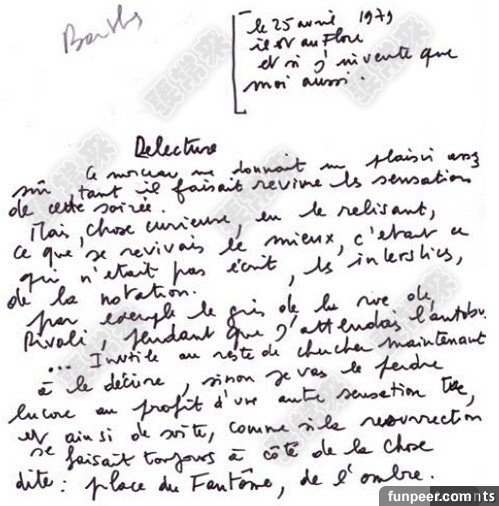 Barthes
le 25 avril 1979
il est au Flore
et si j'invente que
moi aussi.
Delecture
Ce morceau me donnait un plaisir assez
sûr, tant il faisait revivre les sensations
de cette soirée.
Mais, chose curieuse, en le relisant,
ce que je revivais le mieux, c'était ce
qui n'était pas écrit, les interstices,
de la notation.
par exemple le gris de la rue de
Rivoli, pendant que j'attendais l'autobus
... Inutile au reste de chercher maintenant
à le décrire, sinon je vas le perdre
encore au profit d'une autre sensation tue,
et ainsi de suite, comme si la resurrection
se faisait toujours à côté de la chose
dite : place du Fantôme, de l'ombre.
funpeer.comnts